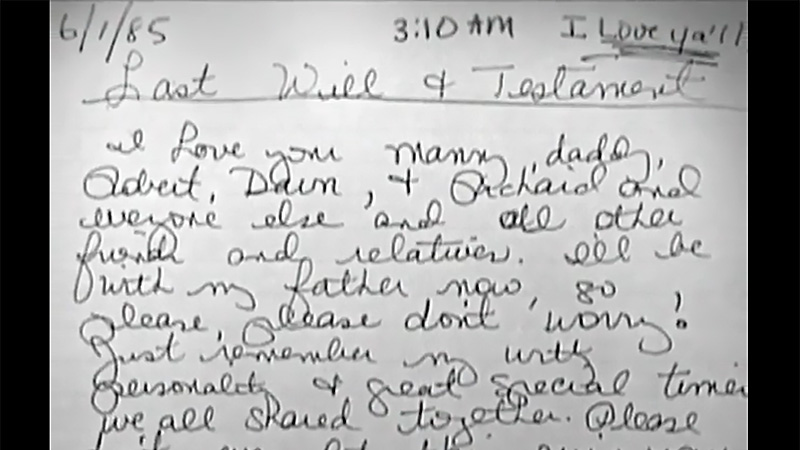 6/1/85 3:10 AM I Love ya'll
Last Will & Testament
I Love you mamy, daddy,
Robert, Dawn, & Richard and
everyone else and all other
friends and relatives. I'll be
with my father now, so
please, please don't worry!
Just remember my witty
personality & great special times
we all shared together. Please